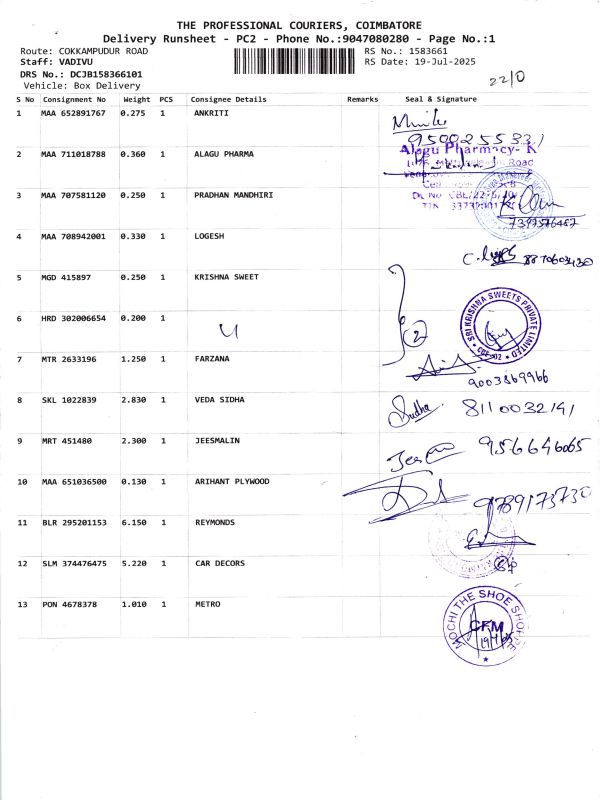 THE PROFESSIONAL COURIERS, COIMBATORE
Delivery Runsheet - PC2 - Phone No.:9047080280 - Page No.:1
Route: COKKAMPUDUR ROAD RS No.: 1583661
Staff: VADIVU RS Date: 19-Jul-2025
DRS No.: DCJB158366101
Vehicle: Box Delivery
22/0
S No Consignment No Weight PCS Consignee Details Remarks Seal & Signature
1 MAA 652891767 0.275 1 ANKRITI
9500255331
2 MAA 711018788 0.360 1 ALAGU PHARMA
Alagu Pharmacy- K
Road
3 MAA 707581120 0.250 1 PRADHAN MANDHIRI
7397576467
4 MAA 708942001 0.330 1 LOGESH
8870603430
5 MGD 415897 0.250 1 KRISHNA SWEET
SRI KRISHNA SWEETS PRIVATE LIMITED
6 HRD 302006654 0.200 1
4
2
7 MTR 2633196 1.250 1 FARZANA
9003869966
8 SKL 1022839 2.830 1 VEDA SIDHA
Sudha 8110032141
9 MRT 451480 2.300 1 JEESMALIN
956646065
10 MAA 651036500 0.130 1 ARIHANT PLYWOOD
9789173730
11 BLR 295201153 6.150 1 REYMONDS
12 SLM 374476475 5.220 1 CAR DECORS
13 PON 4678378 1.010 1 METRO
MOCHI THE SHOE SHOPPE
CFM